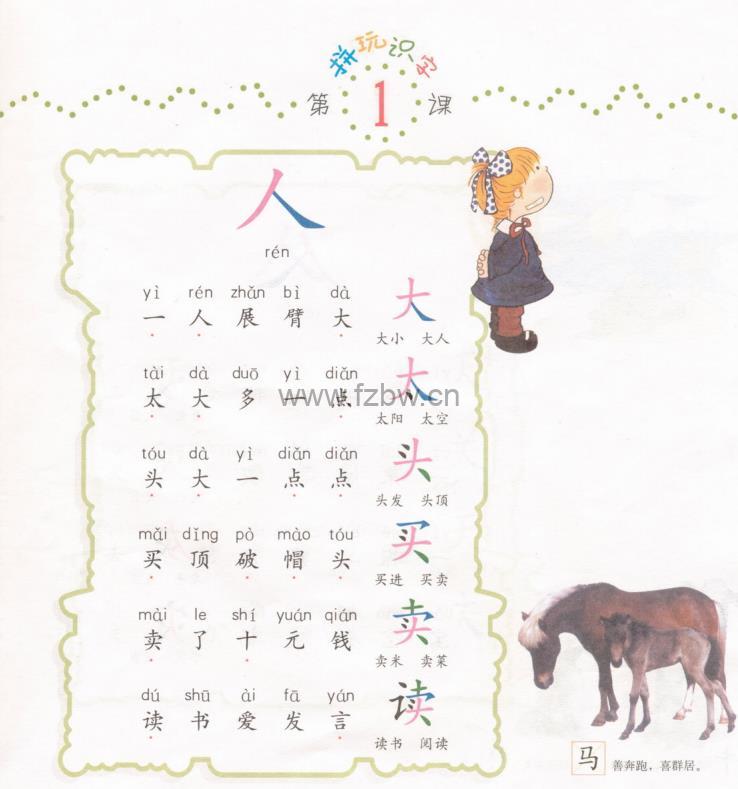 拼玩识字
第1课
人
rén
yì rén zhǎn bì dà
一人展臂大
大
大小 大人
tài dà duō yì diǎn
太大多一点
太
太阳 太空
www.fzbw.cn
tóu dà yì diǎn diǎn
头大一点点
头
头发 头顶
mǎi dǐng pò mào tóu
买顶破帽头
买
买进 买卖
mài le shí yuán qián
卖了十元钱
卖
卖米 卖菜
dú shū ài fā yán
读书爱发言
读
读书 阅读
马 善奔跑，喜群居。